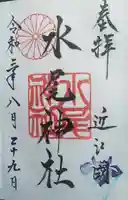 奉拝
近江
水尾神社
令和二年八月二十九日